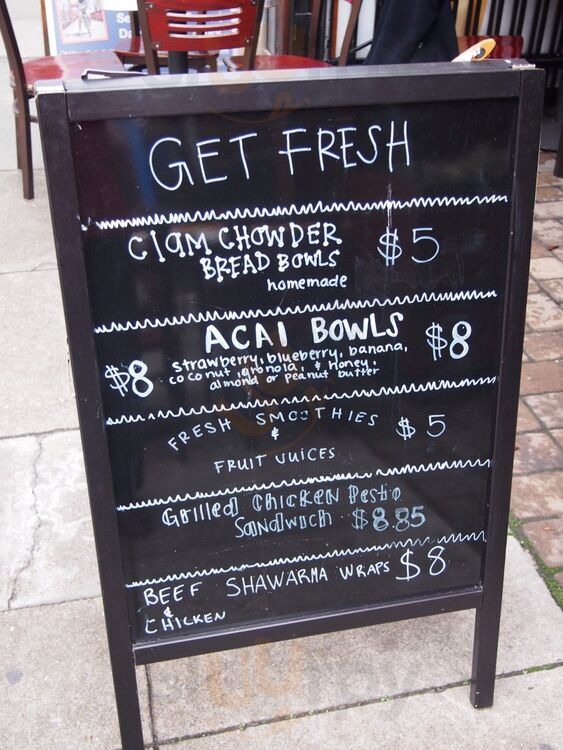 Se
Da
GET FRESH
ClaM CHOWDER $5
BREAD BOWLS
homemade
ACAI BOWLS $8
$8 strawberry, blueberry, banana,
coconut, granola, & Honey,
almond or Peanut butter
FRESH SMOOTHIES $5
&
FRUIT JUICES
Grilled Chicken Pesto
Sandwich $8.85
BEEF SHAWARMA WRAPS $8
&
CHICKEN